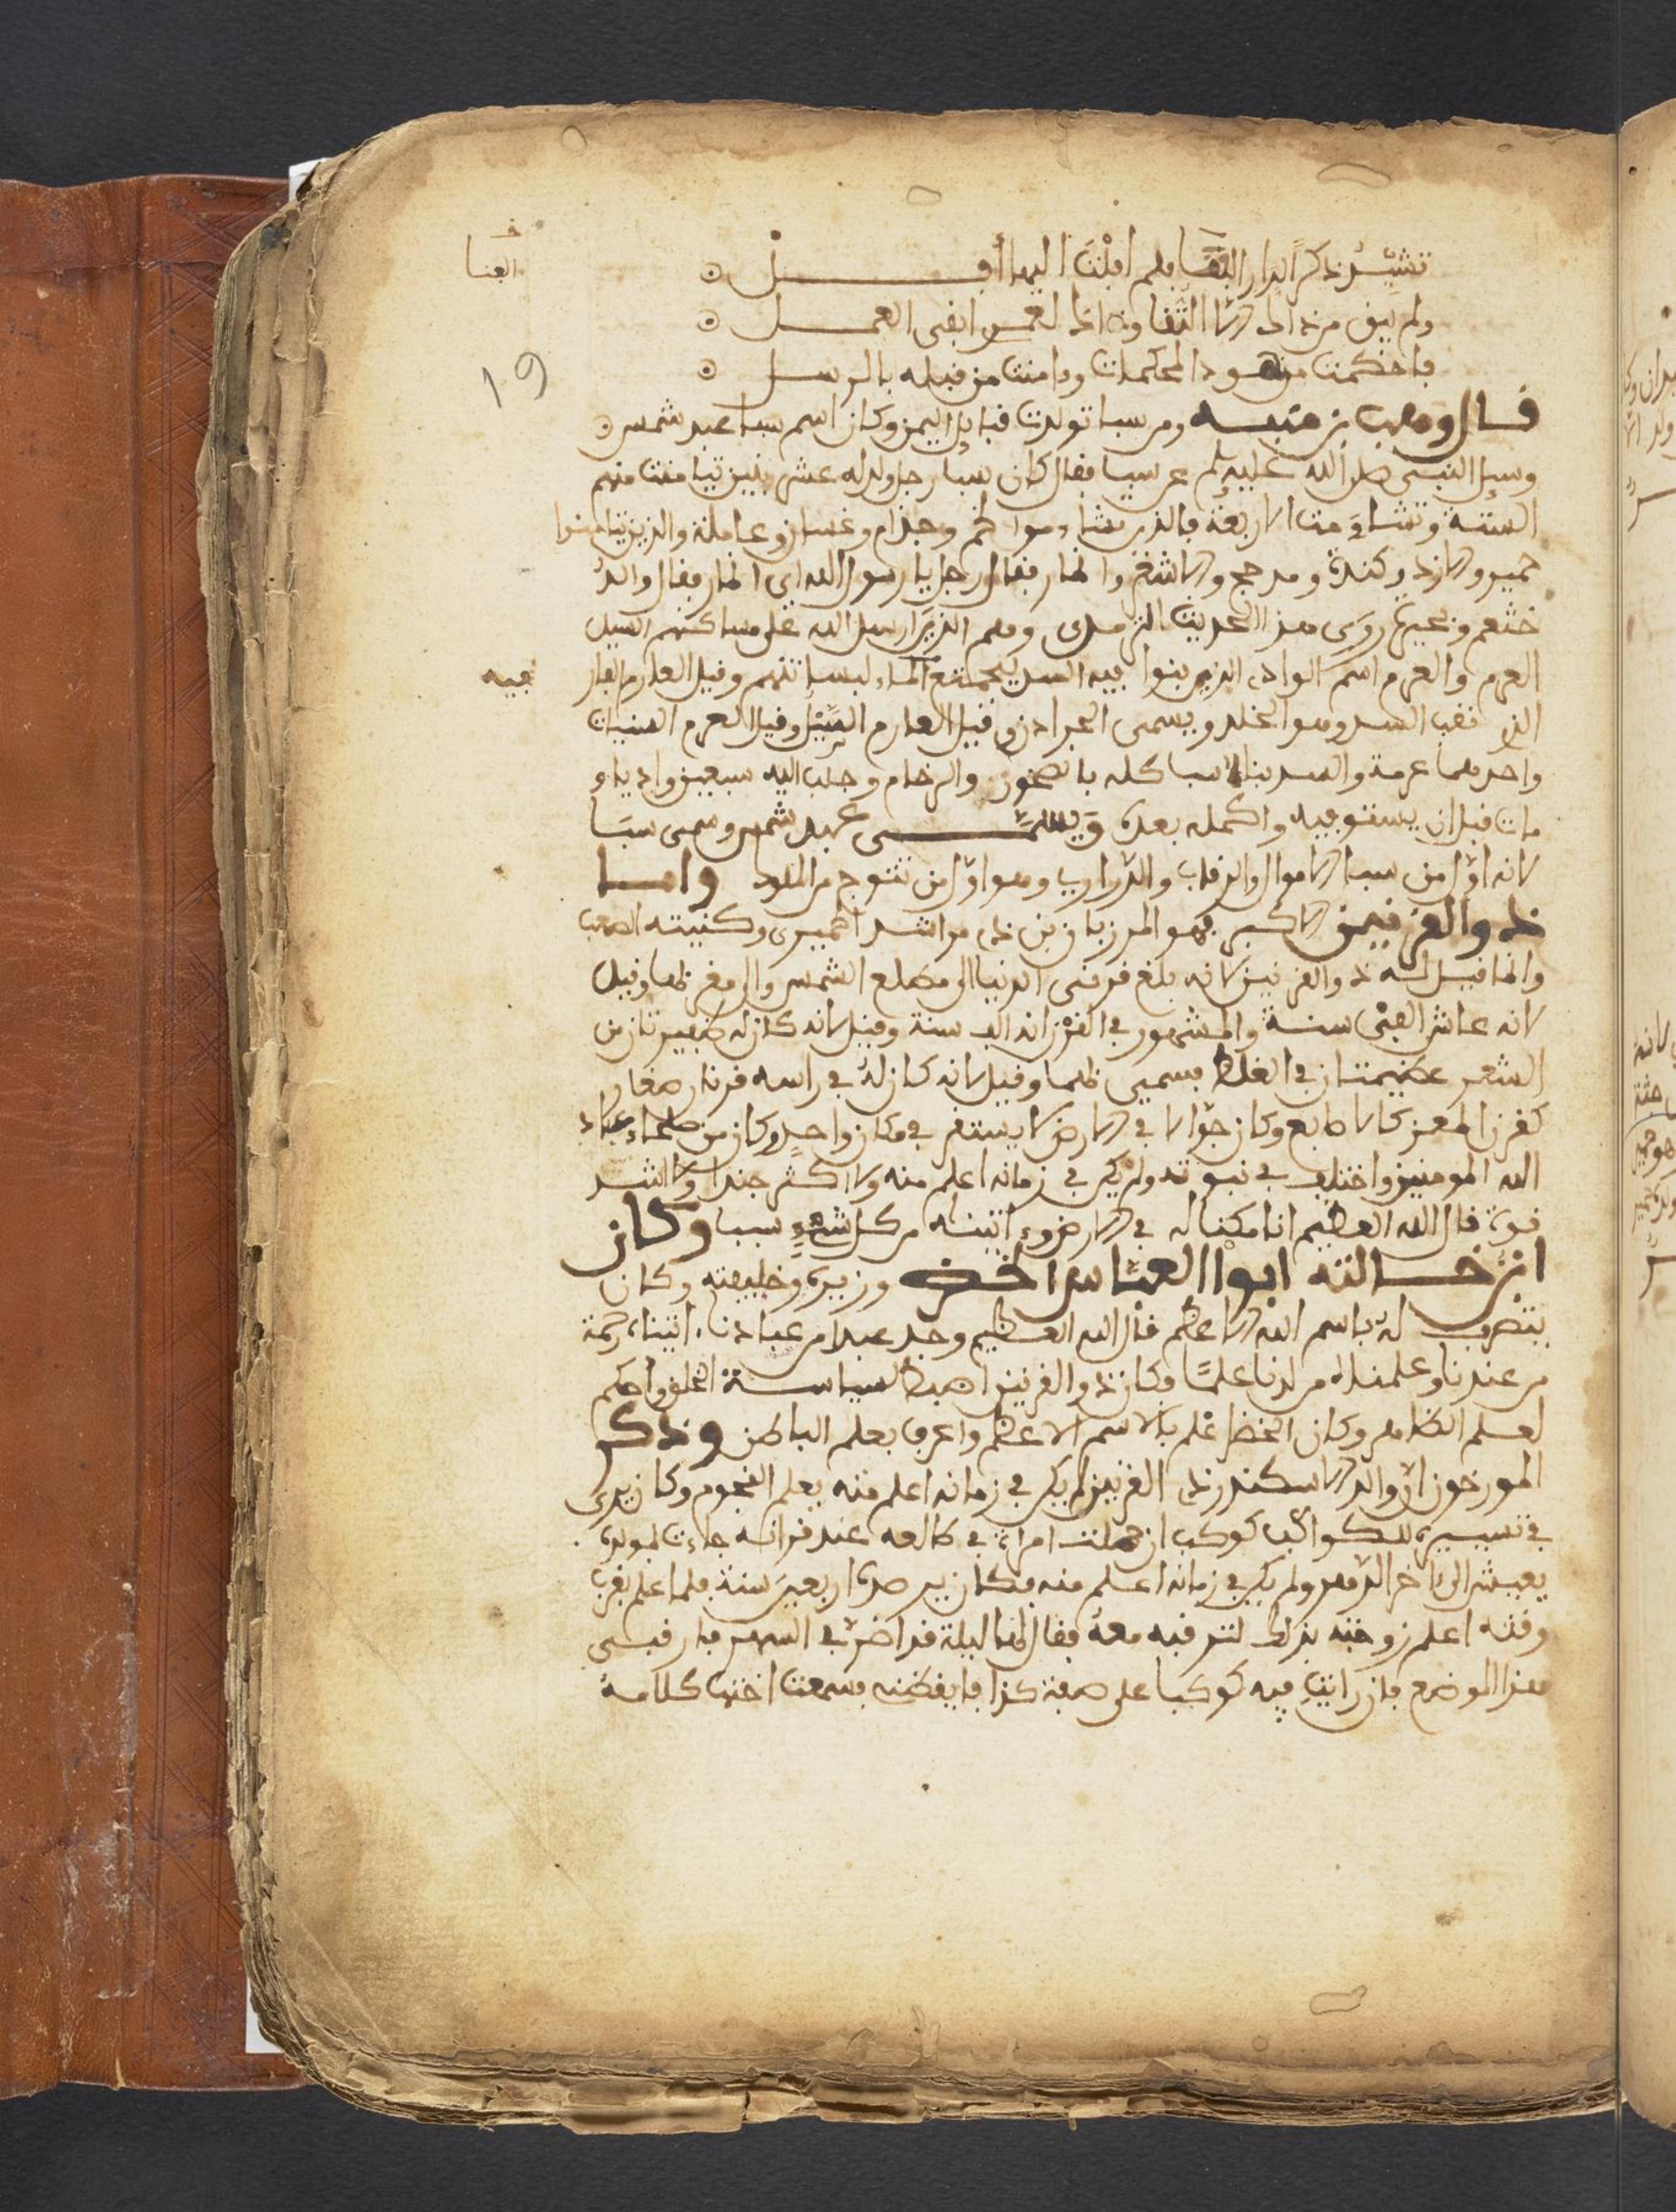 تشيد ذكرا لدار البقا فلم افلت اليها أفــل
ولم يبق من ذاك الا التقا وان العمر ابقى العمــل
فاحكمت من هود المحكمات وءامنت من قبله بالرســل
قــال وهب بن منبــه ومن سبا تولدت قبايل اليمن وكان اسم سبا عبد شمس
وسيل النبي صلى الله عليه وسلم عن سبا فقال كان سبا رجل ولد له عشر بنين تيامنت منهم
الستة وتشاءمت الاربعة فالذين تشاءموا لخم وجذام وغسان وعاملة والذين تيامنوا
حمير والازد وكندة ومدحج والاشعر وانمار فقال رجل يا رسول الله اي انمار فقال والد
خثعم وبجيلة روى هذا الحديث الترمدي وهم الذين ارسل الله على مساكنهم السيل
العرم والعرم اسم الوادي الذي بنوا فيه السد ليجتمع الماء لبساتنهم وقيل العارم الفار
الذي نقب السد وهو الخلد ويسمى الجرادن وقيل العارم السيل وقيل العرم السنيات
واحدها عرمة والسد بناه سبا كله بالصخور والرخام وجلب اليه سبعين واديا و
مات قبل ان يستوفيه واكمله بعده ويسمــى عبد شمس وسمى سبا
لانه اول من سبا الاموال والرقاب والذراري وهو اول من تتوج من الملوك وامــا
ذو القرنين الاكبر فهو المرزبان بن ذي مراشد الحميري وكنيته الصعب
وانما قيل له ذو القرنين لانه بلغ قرني الدنيا الى مطلع الشمس والى مغربها وقيل
لانه عاش الفي سنة والمشهور في القرن انه الف سنة وقيل لانه كان له ضفيرتان من
الشعر عظيمتان في الغلظ فسمي بهما وقيل لانه كان له في راسه قرنان صغار
كقرن المعز كالاصابع وكان جوالا في الارض لا يستقر في مكان واحد وكان من صلحاء عباد
الله المومنين واختلف في نبوته ولم يكن في زمانه اعلم منه ولا اكثر جندا ولا اشد
قوة قال الله العظيم انا مكنا له في الارض وءاتيناه من كل شيء سببا وكان
ابن خــالته ابو العباس الخضر وزيره وخليفته وكان
يتصرف له باسم الله الاعظم قال الله العظيم وجد عبدا من عبادنا ءاتيناه رحمة
من عندنا وعلمناه من لدنا علما وكان ذو القرنين اضبط لسياسة الخلق واحكم
لعلم الظاهر وكان الخضر علم بالاسم الاعظم واعرف بعلم الباطن وذكر
المورخون ان والد الاسكندر ذي القرنين لم يكن في زمانه اعلم منه بعلم النجوم وكان يرى
في تسييره للكواكب كوكب ان حملت امراة في طالعه عند قرانه جاءت بمولود
يعيش الى ءاخر الدهر ولم يكن في زمانه اعلم منه فكان يرصده اربعين سنة فلما اعلم بقرب
وقته اعلم زوجته بذلك لترقبه معه فقال لها ليلة قد اضر بي السهر فارقبي
هذا الموضع فان رايت فيه كوكبا على صفة كذا فايقظني فسمعت اختها كلامه
الفنا
فيه
19